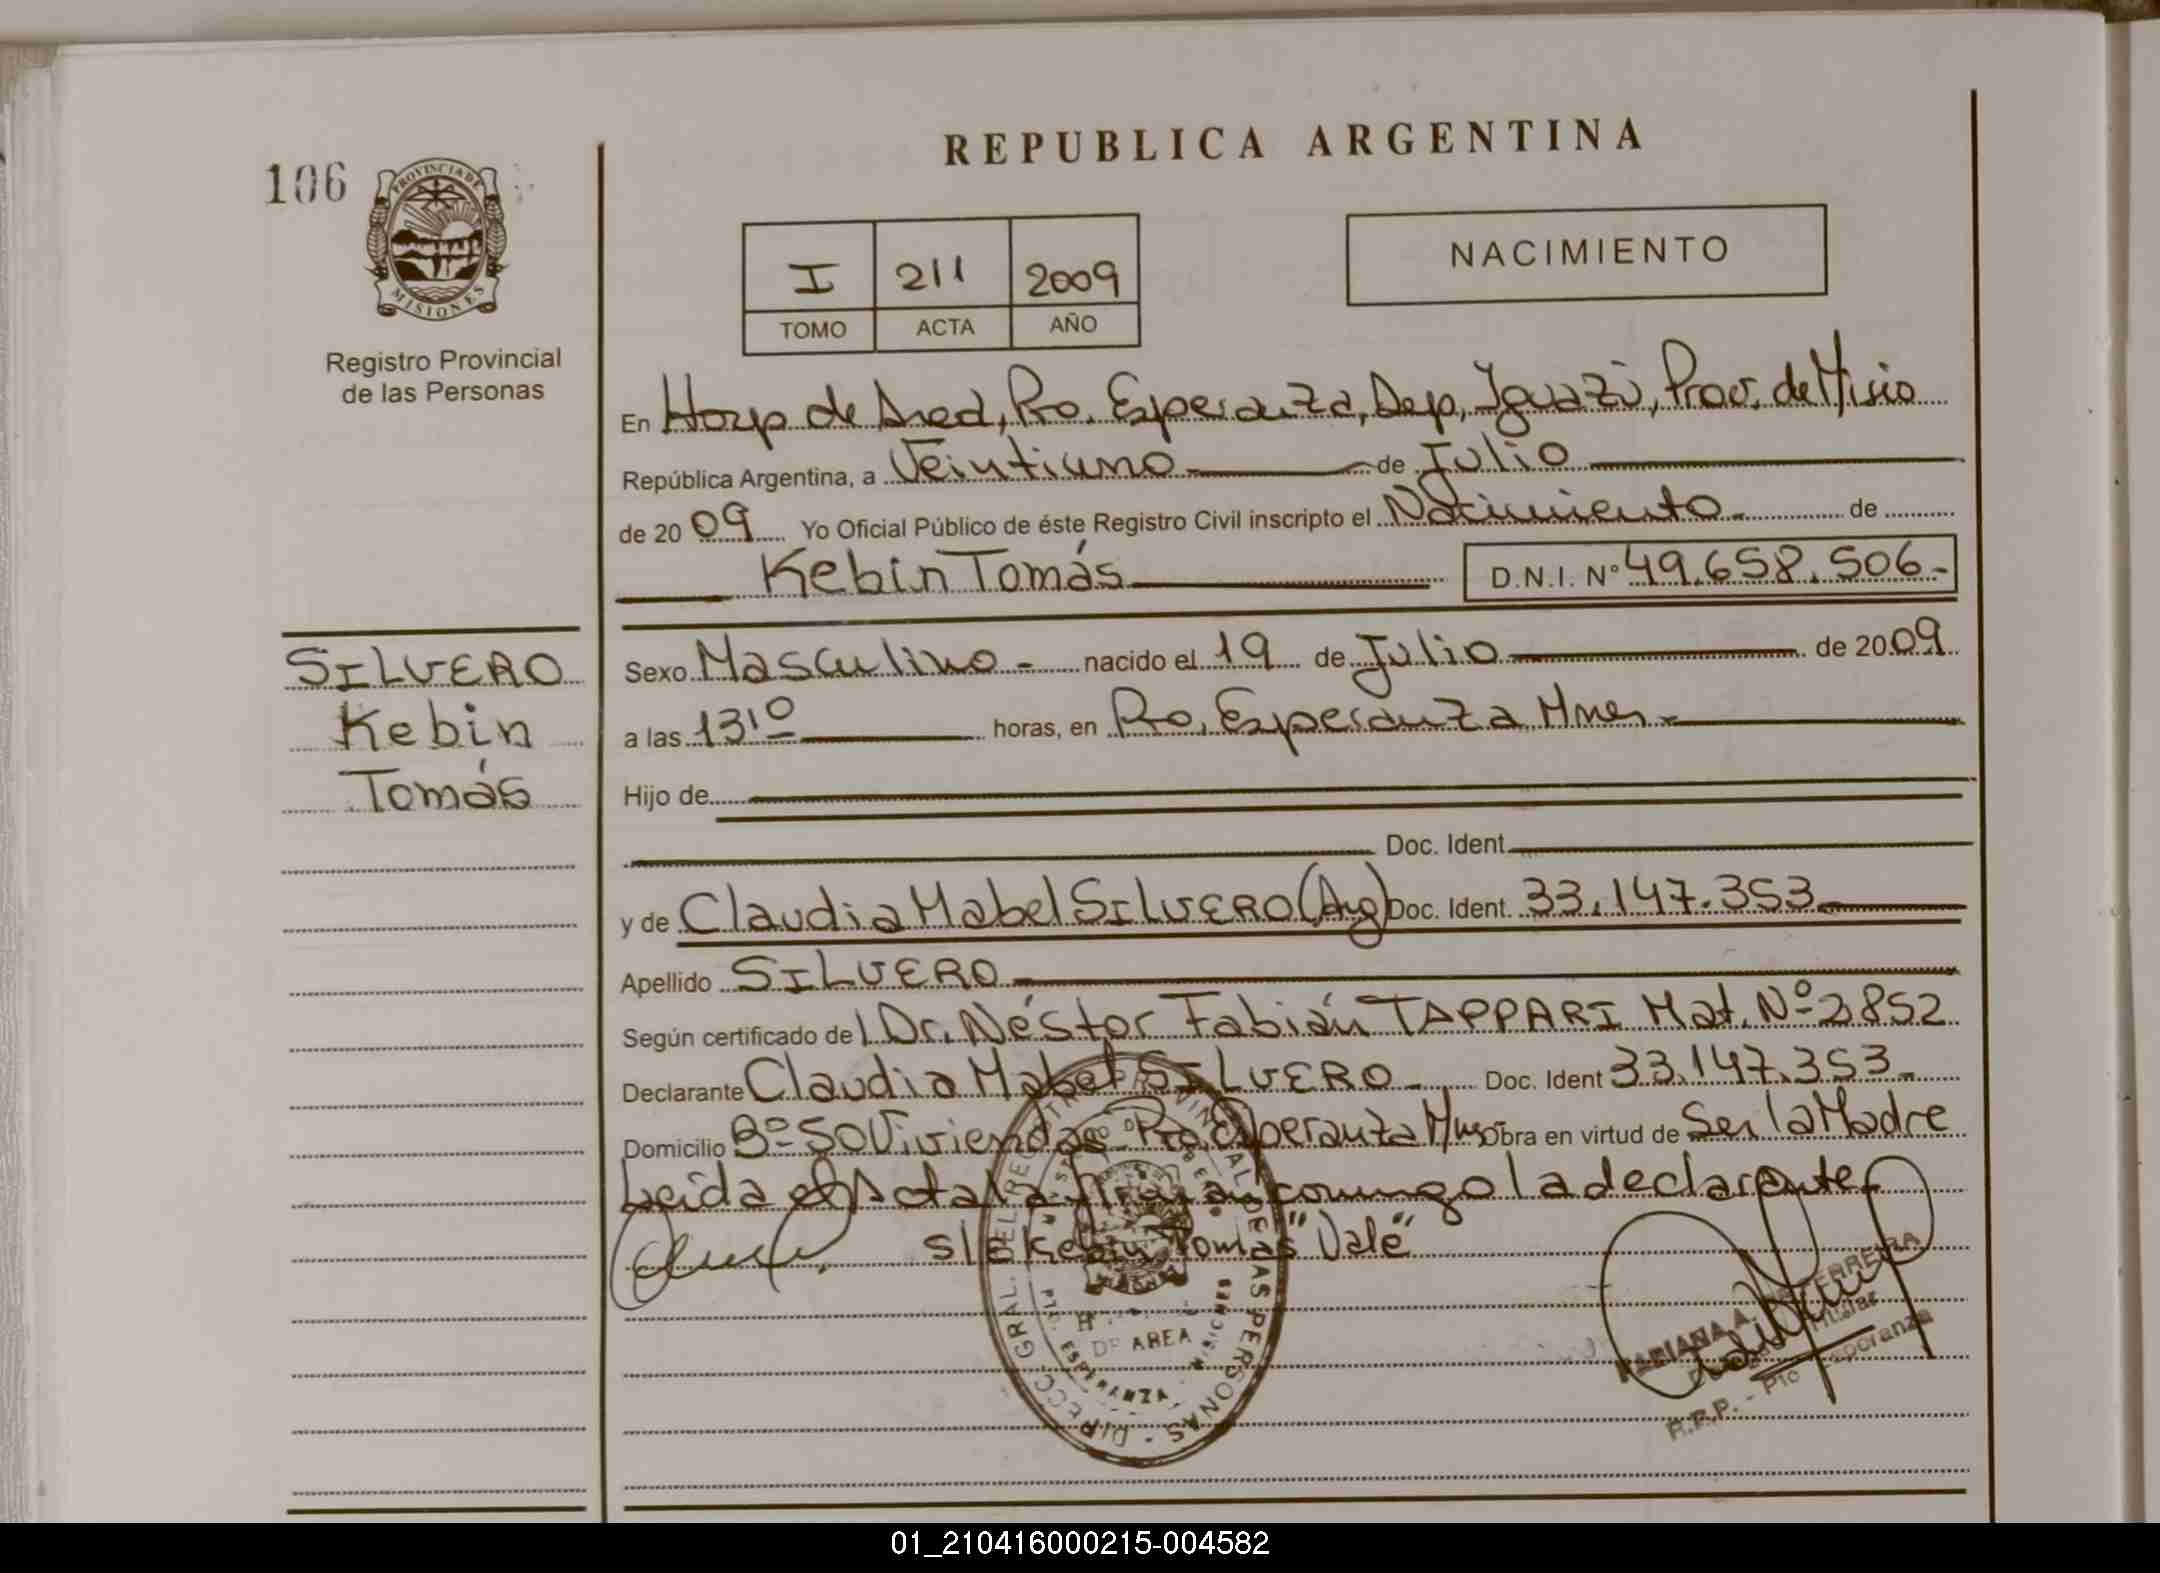 REPUBLICA ARGENTINA
106
PROVINCIA DE MISIONES
Registro Provincial
de las Personas
NACIMIENTO
I 211 2009
TOMO ACTA AÑO
En Hosp de Area, Pto. Esperanza, Dep, Iguazú, Prov. de Misio
República Argentina, a Veintiuno de Julio
de 2009 Yo Oficial Público de éste Registro Civil inscripto el Nacimiento de
Kebin Tomás D.N.I. Nº 49.658.506.-
SILVERO
Kebin
Tomás
Sexo Masculino - nacido el 19 de Julio de 2009
a las 13,10 horas, en Pto, Esperanza Mnes.-
Hijo de
Doc. Ident.
y de Claudia Mabel SILVERO (Arg) Doc. Ident. 33.147.353.
Apellido SILVERO
Según certificado del Dr. Néstor Fabián TAPPARI Mat. Nº 2852
Declarante Claudia Mabel SILVERO - Doc. Ident 33.147.353.-
Domicilio Bº 50 Viviendas Pto. Esperanza Mnes Obra en virtud de Ser la Madre
Leida el Acta la firman conmigo la declarante
s/b Kebin Tomas "Vale"
DIRECC. GRAL. DEL REGISTRO PROVINCIAL DE LAS PERSONAS
DE AREA
MARIANA A. FERREIRA
Titular
R.P.P. - Pto Esperanza
01_210416000215-004582